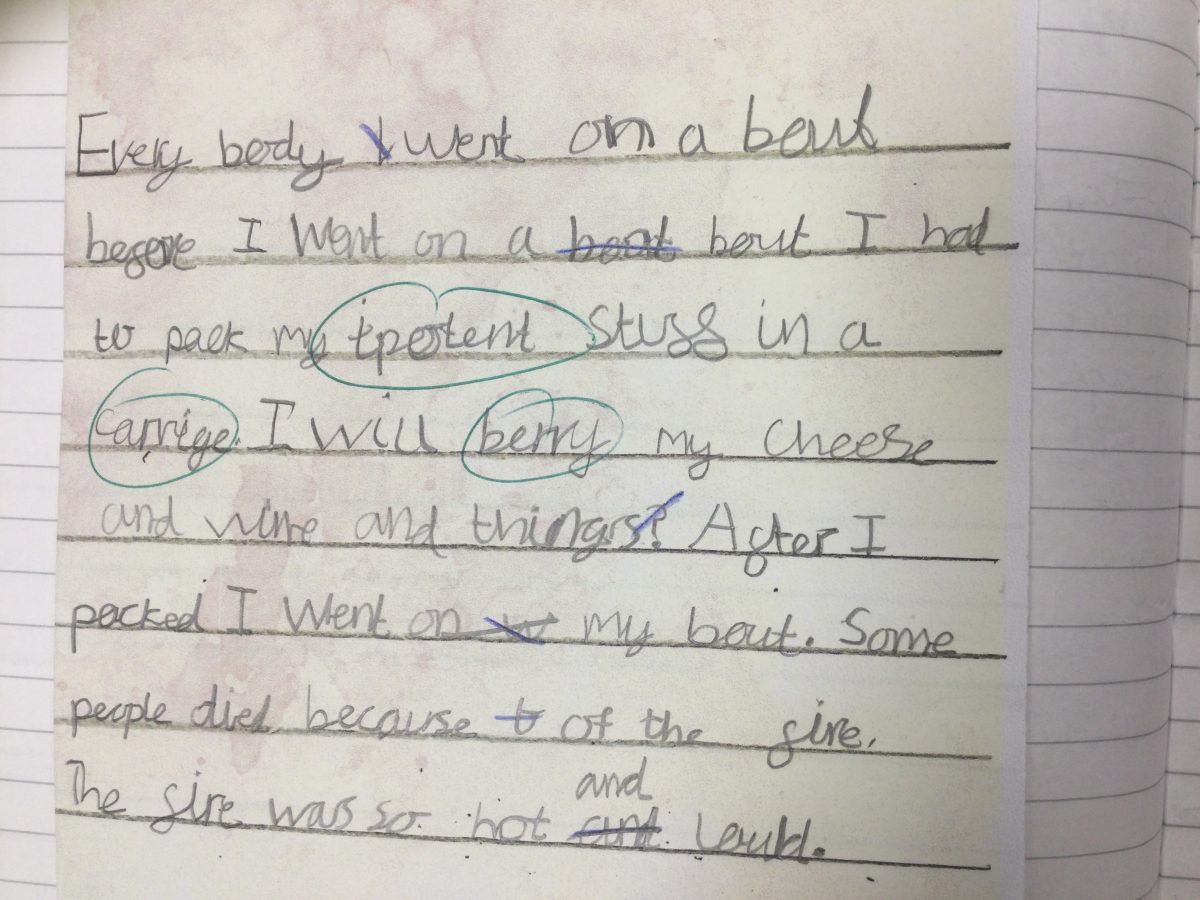 Every body went on a bout
begore I went on a boat bout I had
to pack my tportent stugg in a
carrige. I will berry my cheese
and wine and things! Agter I
packed I went on my bout. Some
people died because t of the gire.
The gire was so hot and
aunt Lould.